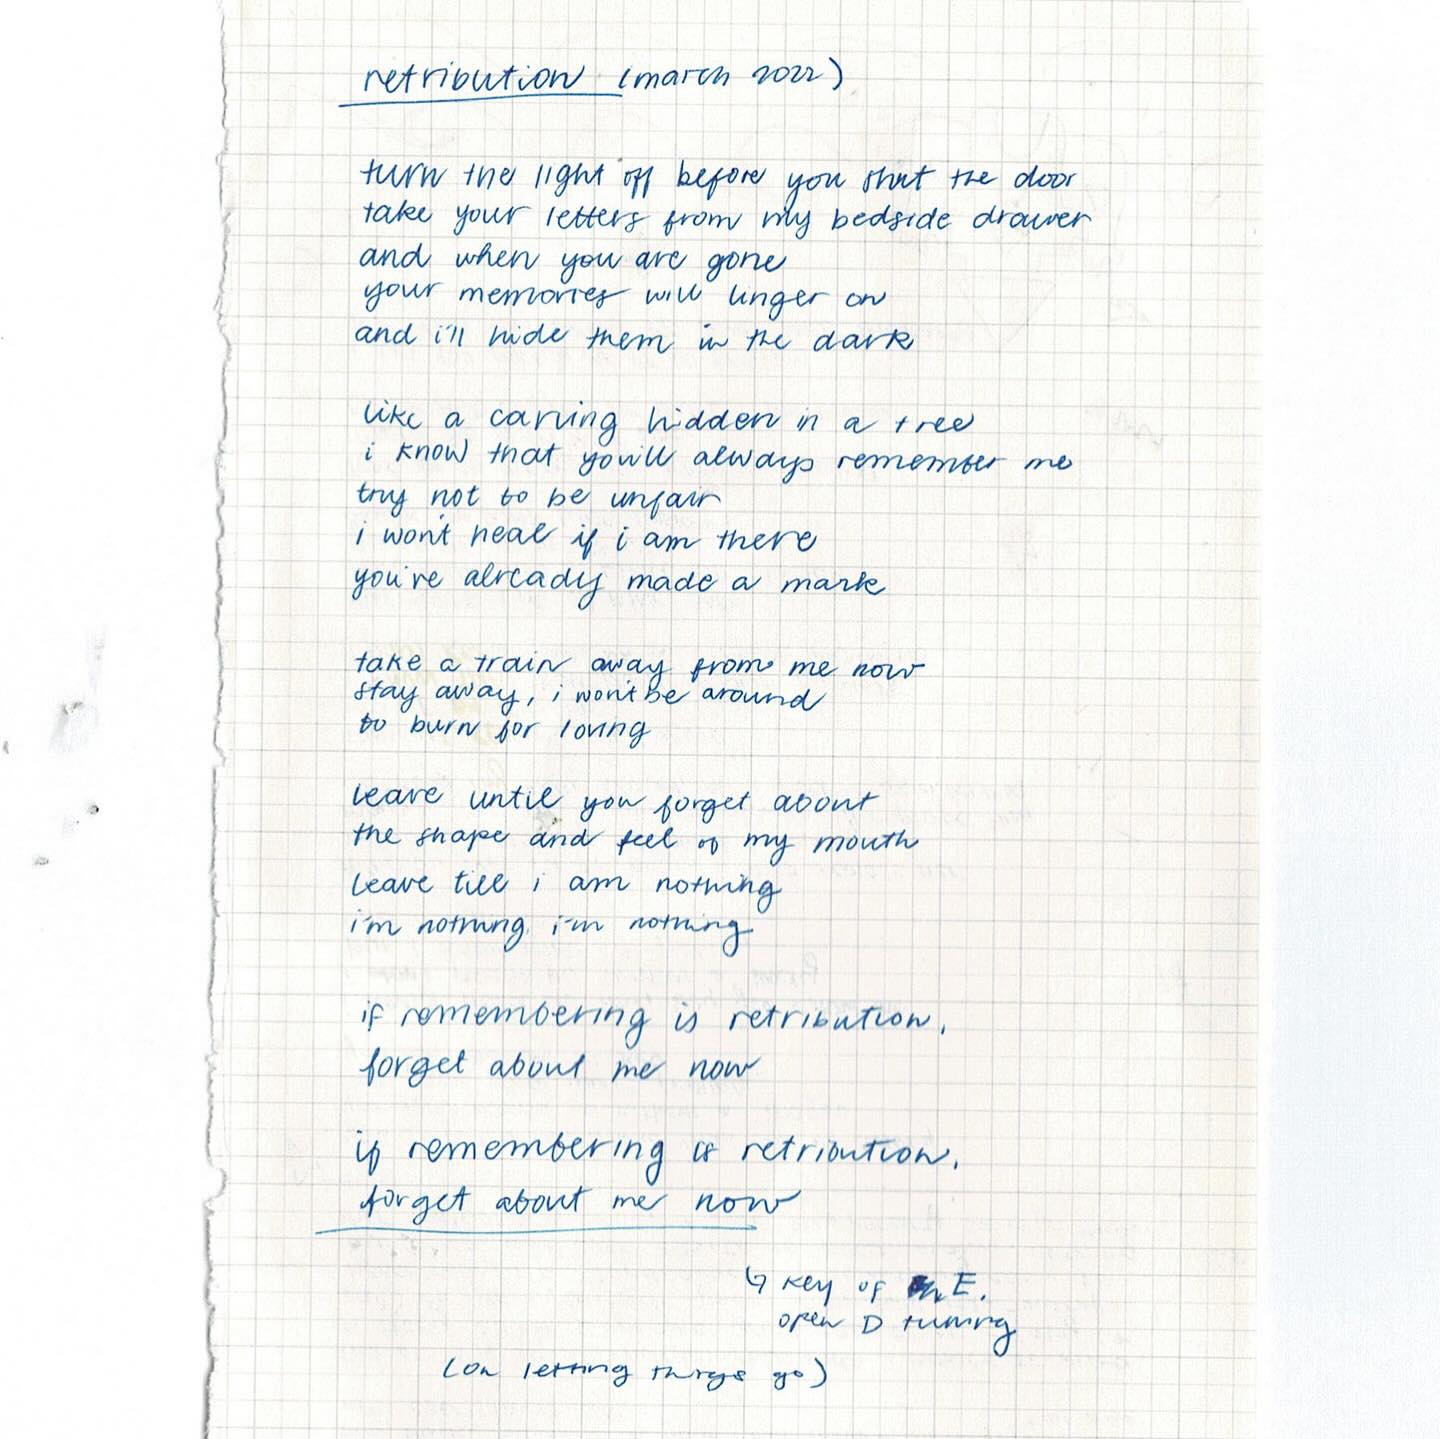 retribution (march 2022)
turn the light off before you shut the door
take your letters from my bedside drawer
and when you are gone
your memories will linger on
and i'll hide them in the dark
like a carving hidden in a tree
i know that you'll always remember me
try not to be unfair
i won't heal if i am there
you've already made a mark
take a train away from me now
stay away, i won't be around
to burn for loving
leave until you forget about
the shape and feel of my mouth
leave till i am nothing
i'm nothing, i'm nothing
if remembering is retribution,
forget about me now
if remembering is retribution,
forget about me now
↳ key of E.
open D tuning
(on letting things go)